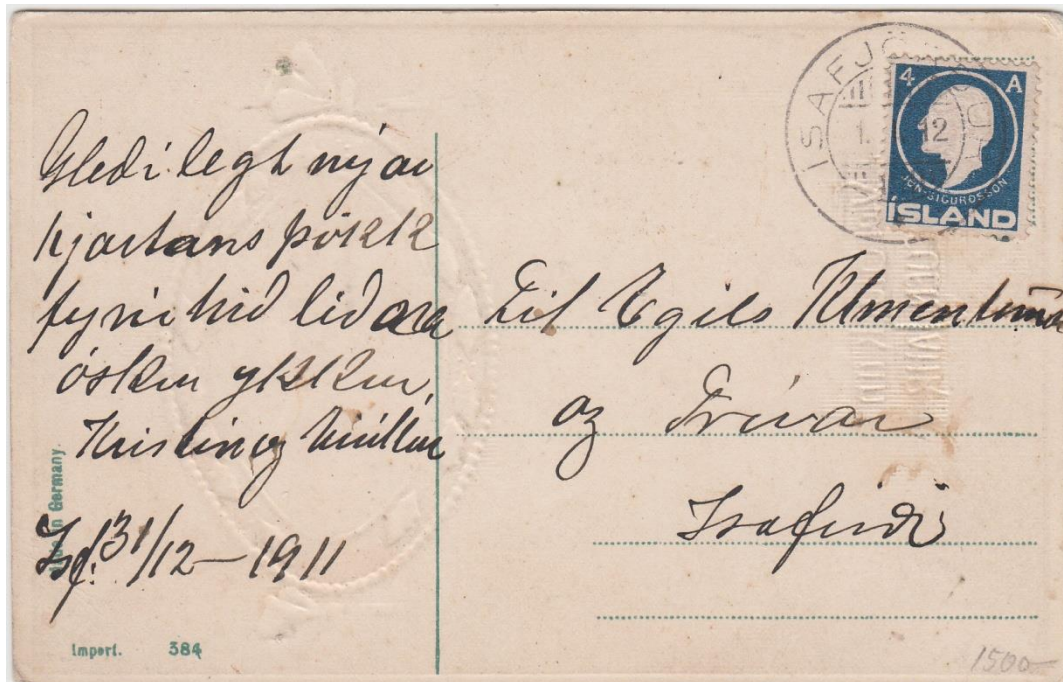 Gledilegt nýár
hjartans þökk
fyrir hid lidna
óskum ykkur
Kristin og
Isf. 31/12 – 1911
Germany
Import. 384
ISAFJÖ
1. 12
4 A
JÓN·SIGURÐSSON
ÍSLAND
Til Egils Klmentssonar
og Frúar
Isafirdi
1500-